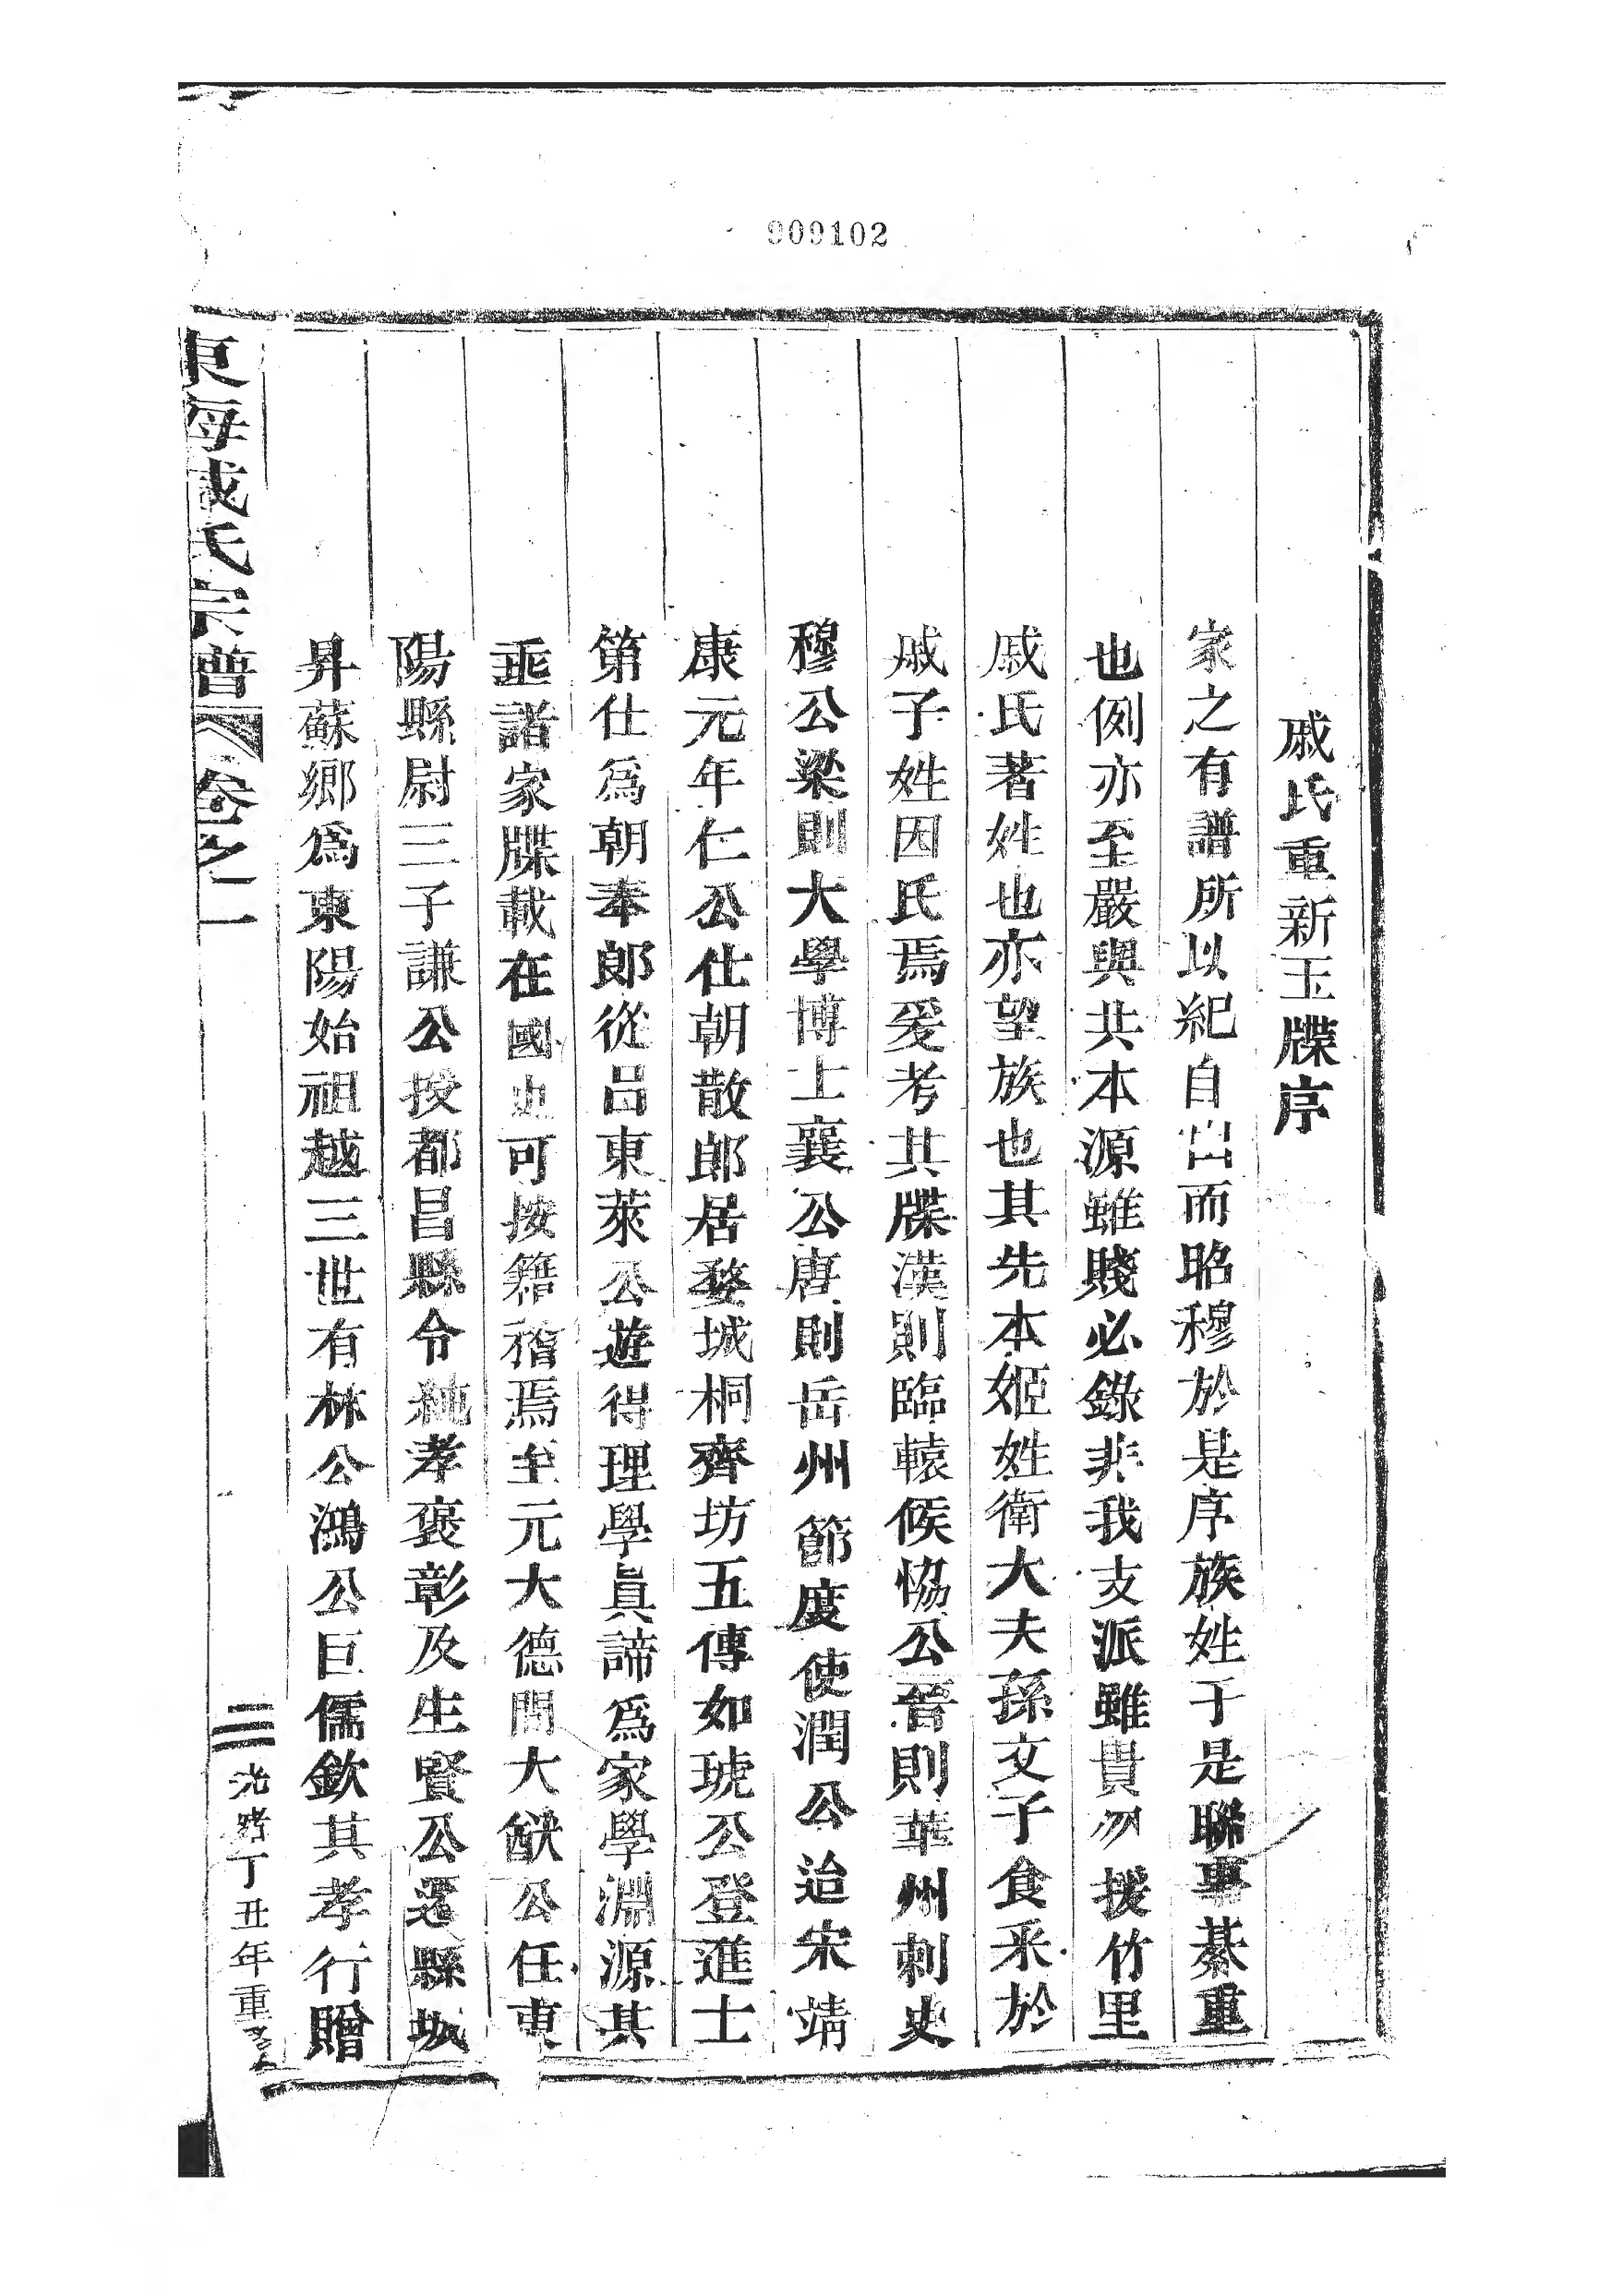 909102
戚氏重新玉牒序
家之有譜所以紀自出而昭穆於是序族姓于是聯事綦重
也例亦至嚴與共本源雖賤必錄非我支派雖貴勿援竹里
戚氏著姓也亦望族也其先本姬姓衛大夫孫文子食釆於
戚子姓因氏焉爰考其牒漢則臨轅侯恊公晉則華州刺史
穆公梁則大學博士襄公唐則岳州節度使潤公迨宋靖
康元年仁公仕朝散郎居婺城桐齊坊五傳如琥公登進士
第仕爲朝奉郎從呂東萊公遊得理學眞諦爲家學淵源其
諸家牒載在國史可按籍稽焉至元大德間大猷公任東
陽縣尉三子謙公授都昌縣令純孝褒彰及生賢公還縣城
昇蘇鄉爲東陽始祖越三世有林公鴻公巨儒欽其孝行贈
東海戚氏宗譜 卷之一
三 光緒丁丑年重